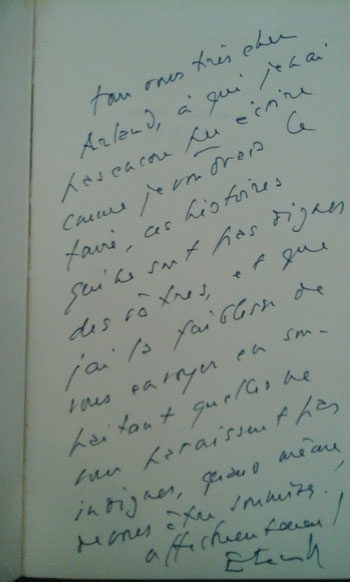 Pour vous très cher
Arland, à qui je n'ai
pas encore pu écrire
comme je voudrais le
faire, ces histoires
qui ne sont pas dignes
des vôtres, et que
j'ai la faiblesse de
vous envoyer en sou-
haitant qu'elles ne
vous paraissent pas
indignes, quand même,
de vous être soumises.
affectueusement